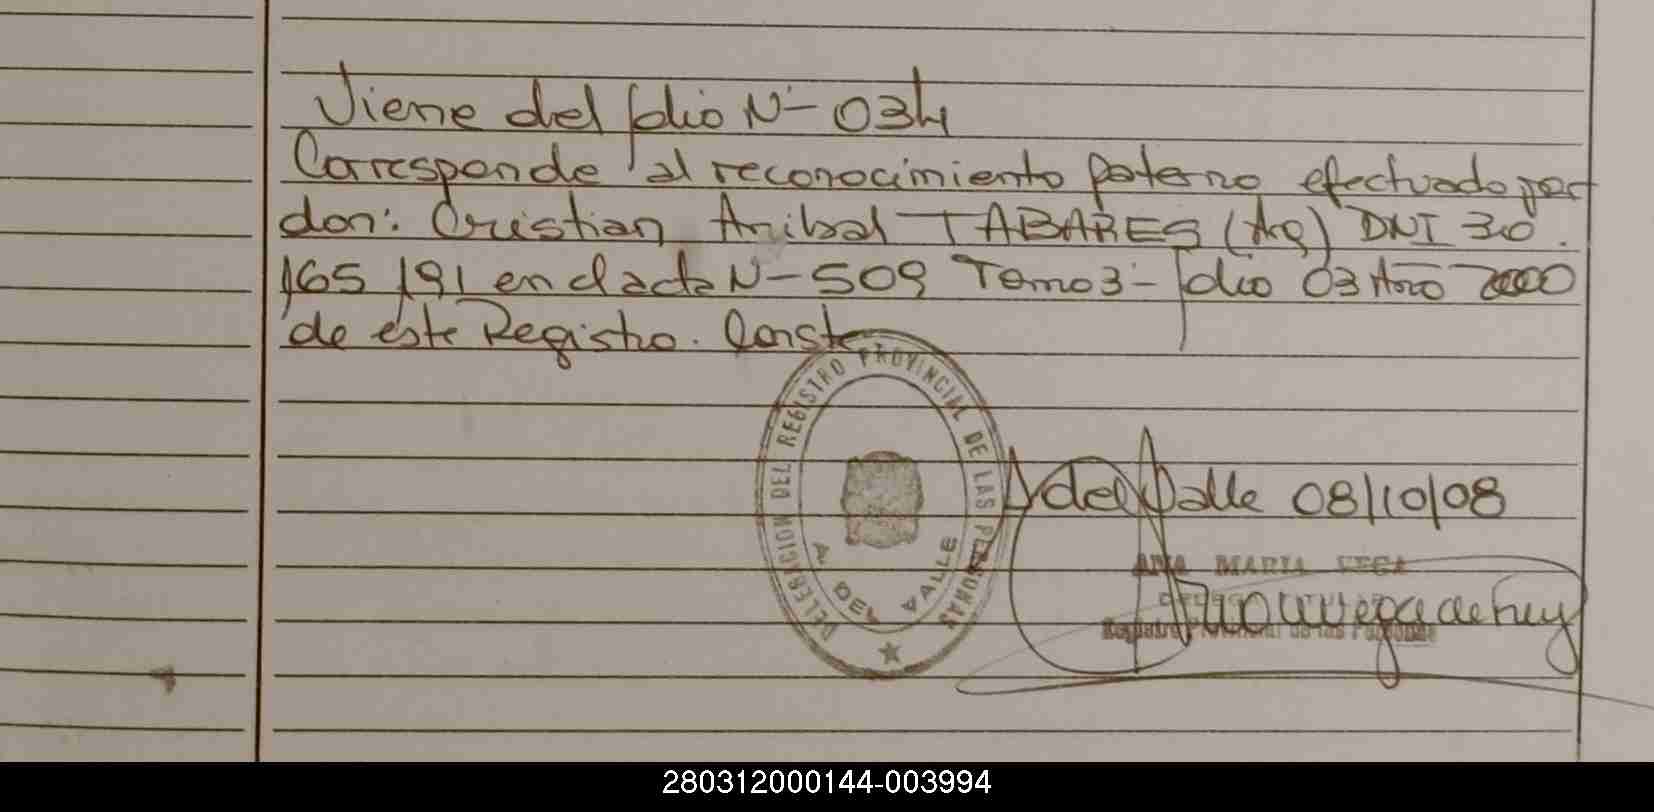 Viene del folio N- 034
Corresponde al reconocimiento paterno efectuado por
don: Cristian Anibal TABARES (Arg) DNI 30.
165 191 en el acta N- 509 Tomo 3- folio 03 Año 2000
de este Registro. Conste
DELEGACION DEL REGISTRO PROVINCIAL DE LAS PERSONAS
A. DEL VALLE
A del Valle 08/10/08
ANA MARIA VEGA
Registro Provincial de las Personas
280312000144-003994